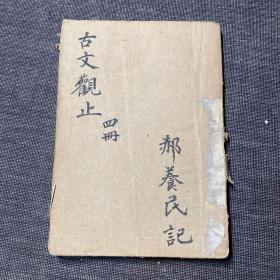 古文觀止
四冊
郝養民記